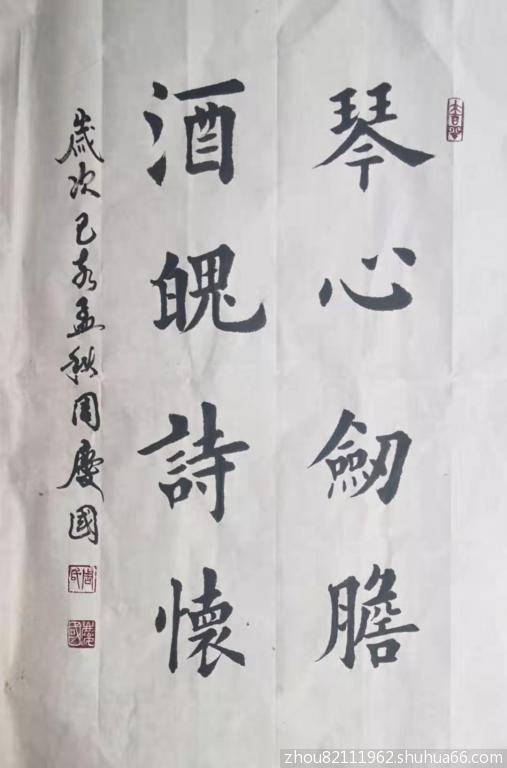 琴心劒膽
酒魄詩懷
歲次己亥孟秋周慶國
周氏
慶國
zhou82111962.shuhua66.com